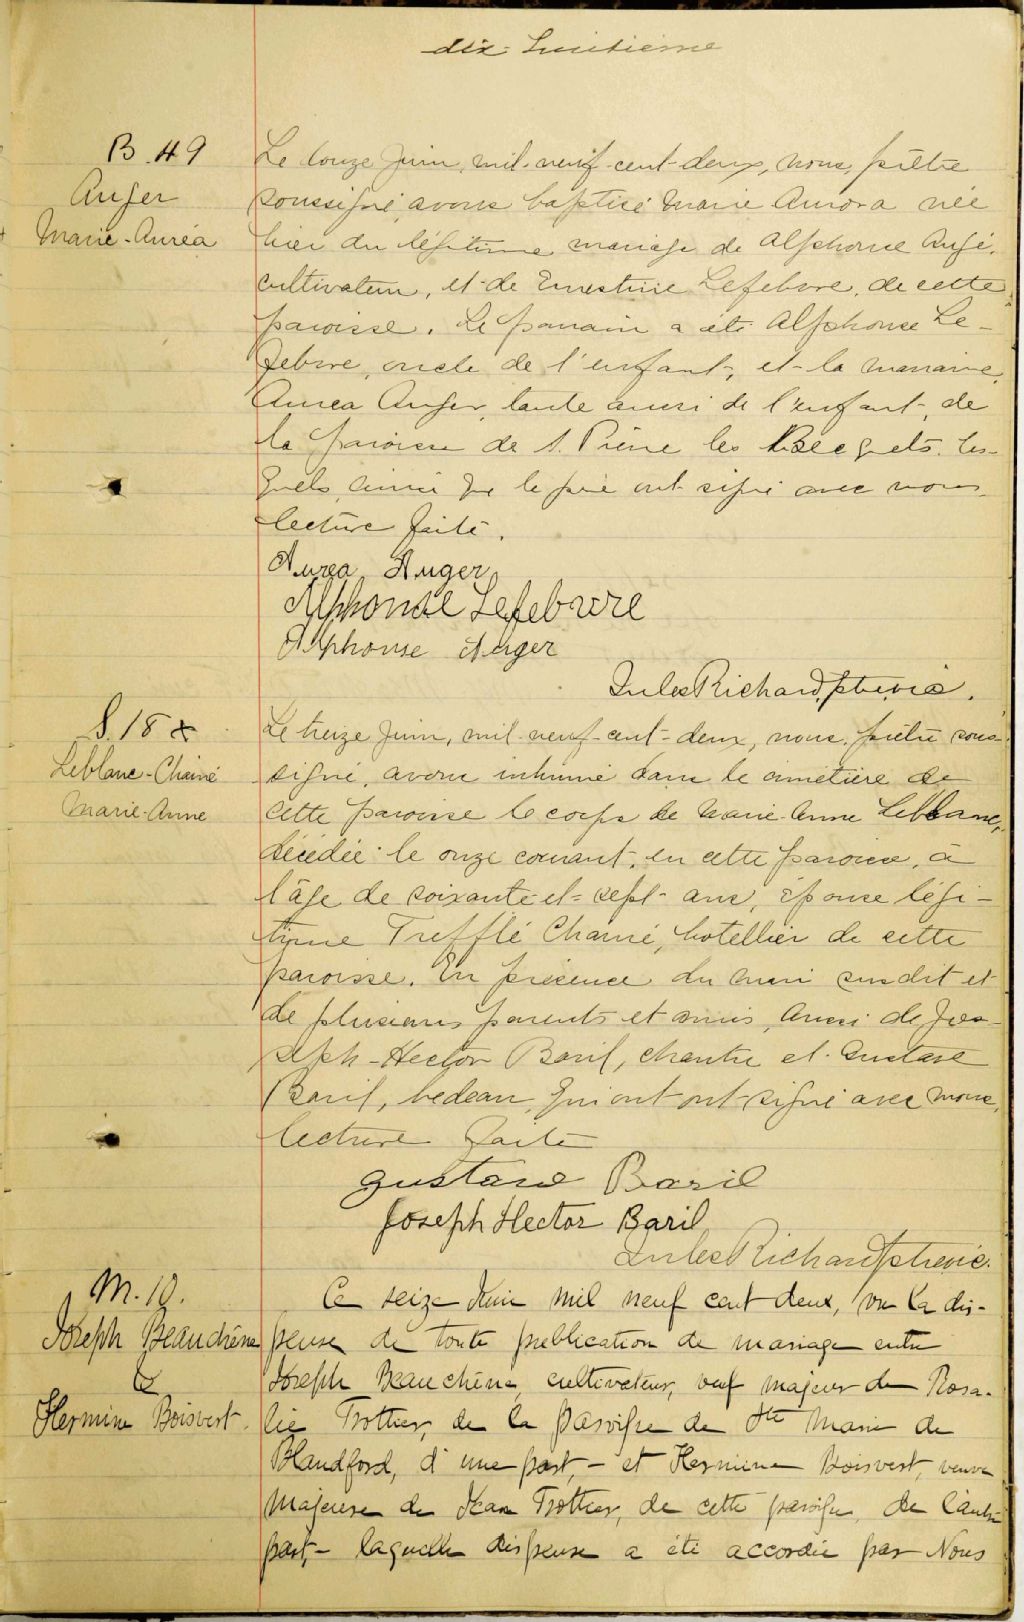 dix-huitième
B. 49
Auger
Marie-Auréa
Le douze Juin, mil-neuf-cent-deux, nous, prêtre
soussigné, avons baptisé Marie Aurora née
hier du légitime mariage de Alphonse Augé,
cultivateur, et de Ernestine Lefebvre, de cette
paroisse. Le parrain a été Alphonse Le-
febvre, oncle de l'enfant, et la marraine,
Aurea Auger, tante aussi de l'enfant, de
la paroisse de S. Pierre les Becquets, les-
quels, ainsi que le père ont signé avec nous,
lecture faite.
Aurea Auger
Alphonse Lefebvre
Alphonse Auger
Jules Richard, ptre, vic.
S. 18 x
Leblanc-Chainé
Marie-Anne
Le treize Juin, mil-neuf-cent-deux, nous, prêtre sous-
signé, avons inhumé dans le cimetière de
cette paroisse le corps de Marie-Anne Leblanc,
décédée le onze courant, en cette paroisse, à
l'âge de soixante-et-sept-ans, épouse légi-
time Trefflé Chainé, hotellier de cette
paroisse. En présence du mari susdit et
de plusieurs parents et amis, aussi de Jos-
seph-Hector Baril, chantre et Gustave
Baril, bedeau, qui ont ont signé avec nous,
lecture faite
Gustave Baril
Joseph Hector Baril
Jules Richard, ptre, vic.
M. 10.
Joseph Beauchêne
&
Hermine Boisvert.
Ce seize Juin mil neuf cent deux, vu la dis-
pense de toute publication de mariage entre
Joseph Beauchêne, cultivateur, veuf majeur de Rosa-
lie Trottier, de la paroisse de Ste Marie de
Blandford, d'une part, - et Hermine Boisvert, veuve
majeure de Jean Trottier, de cette paroisse, de l'autre
part, - laquelle dispense a été accordée par Nous